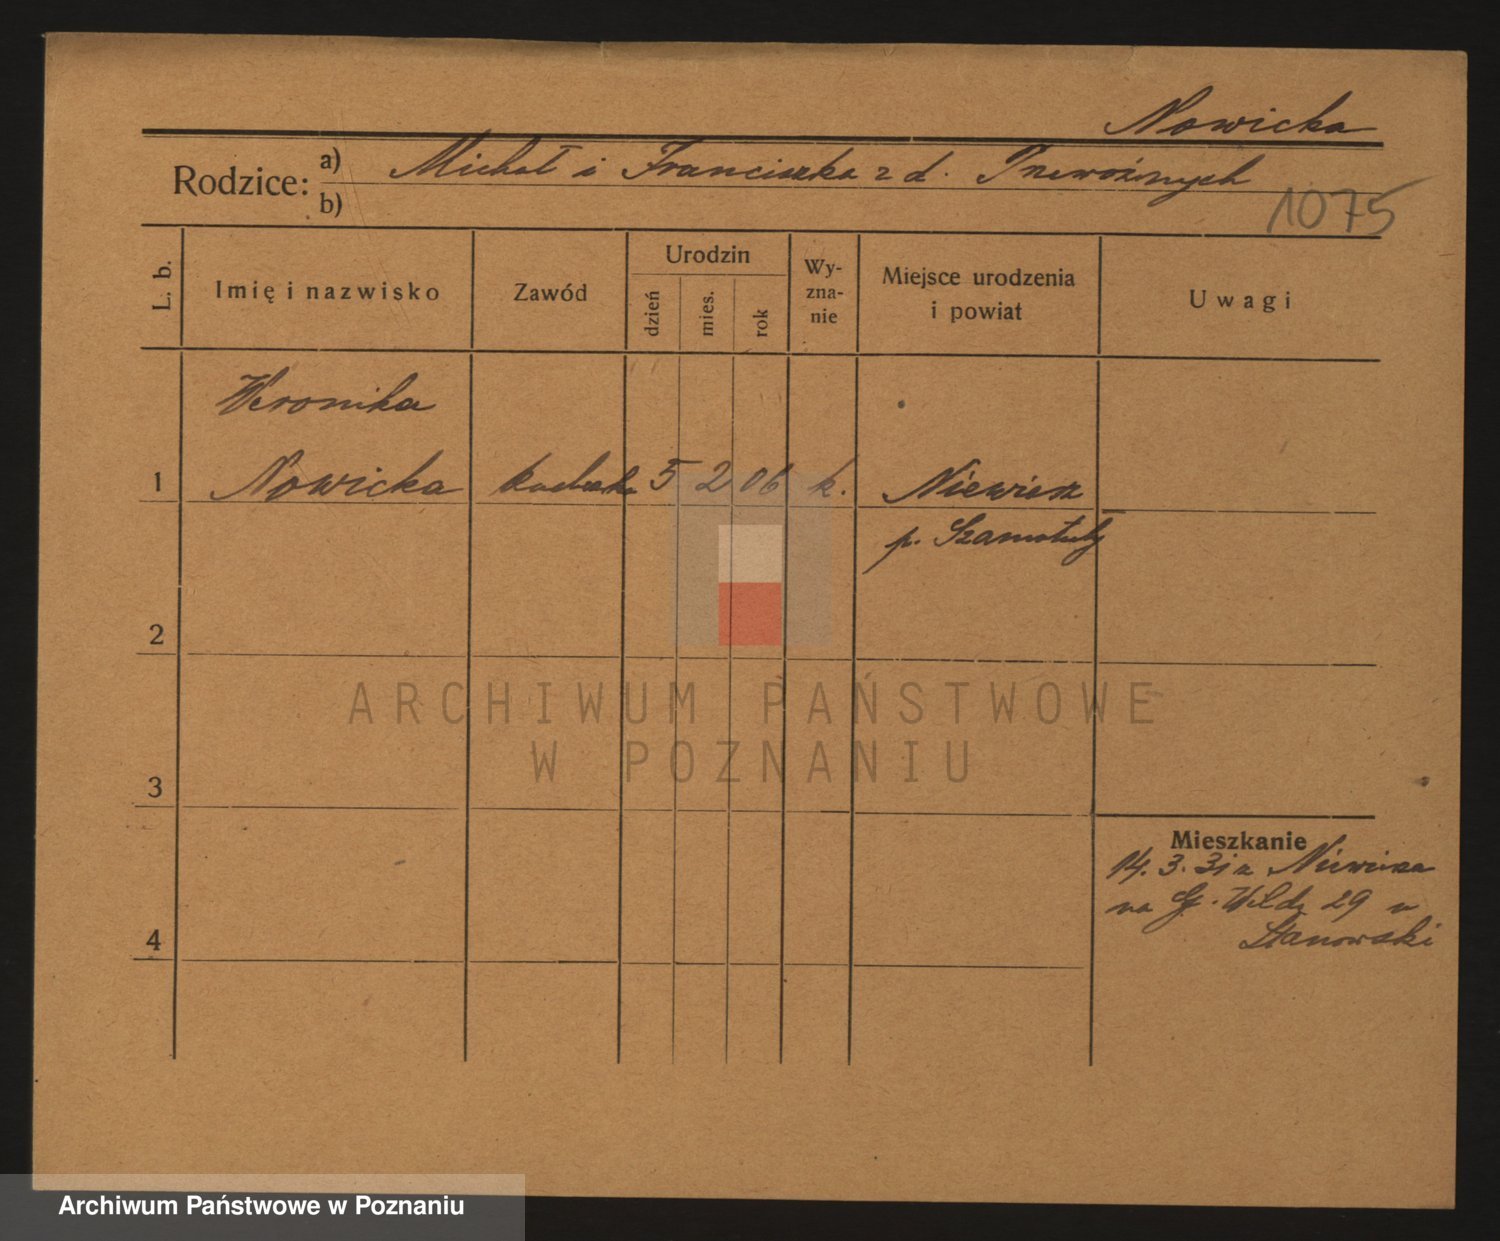 Nowicka
Rodzice: a) Michał i Franciszka z d. Przewoźnych
b)
1075
L. b.
Imię i nazwisko
Zawód
Urodzin
dzień
mies.
rok
Wy-
zna-
nie
Miejsce urodzenia
i powiat
Uwagi
Weronika
1 Nowicka kucharka 5 2 06 k. Niewierz
p. Szamotuły
2
ARCHIWUM PAŃSTWOWE
W POZNANIU
3
Mieszkanie
14. 3. 31 z Niewierza
na G. Wildę 29 u
4
Archiwum Państwowe w Poznaniu